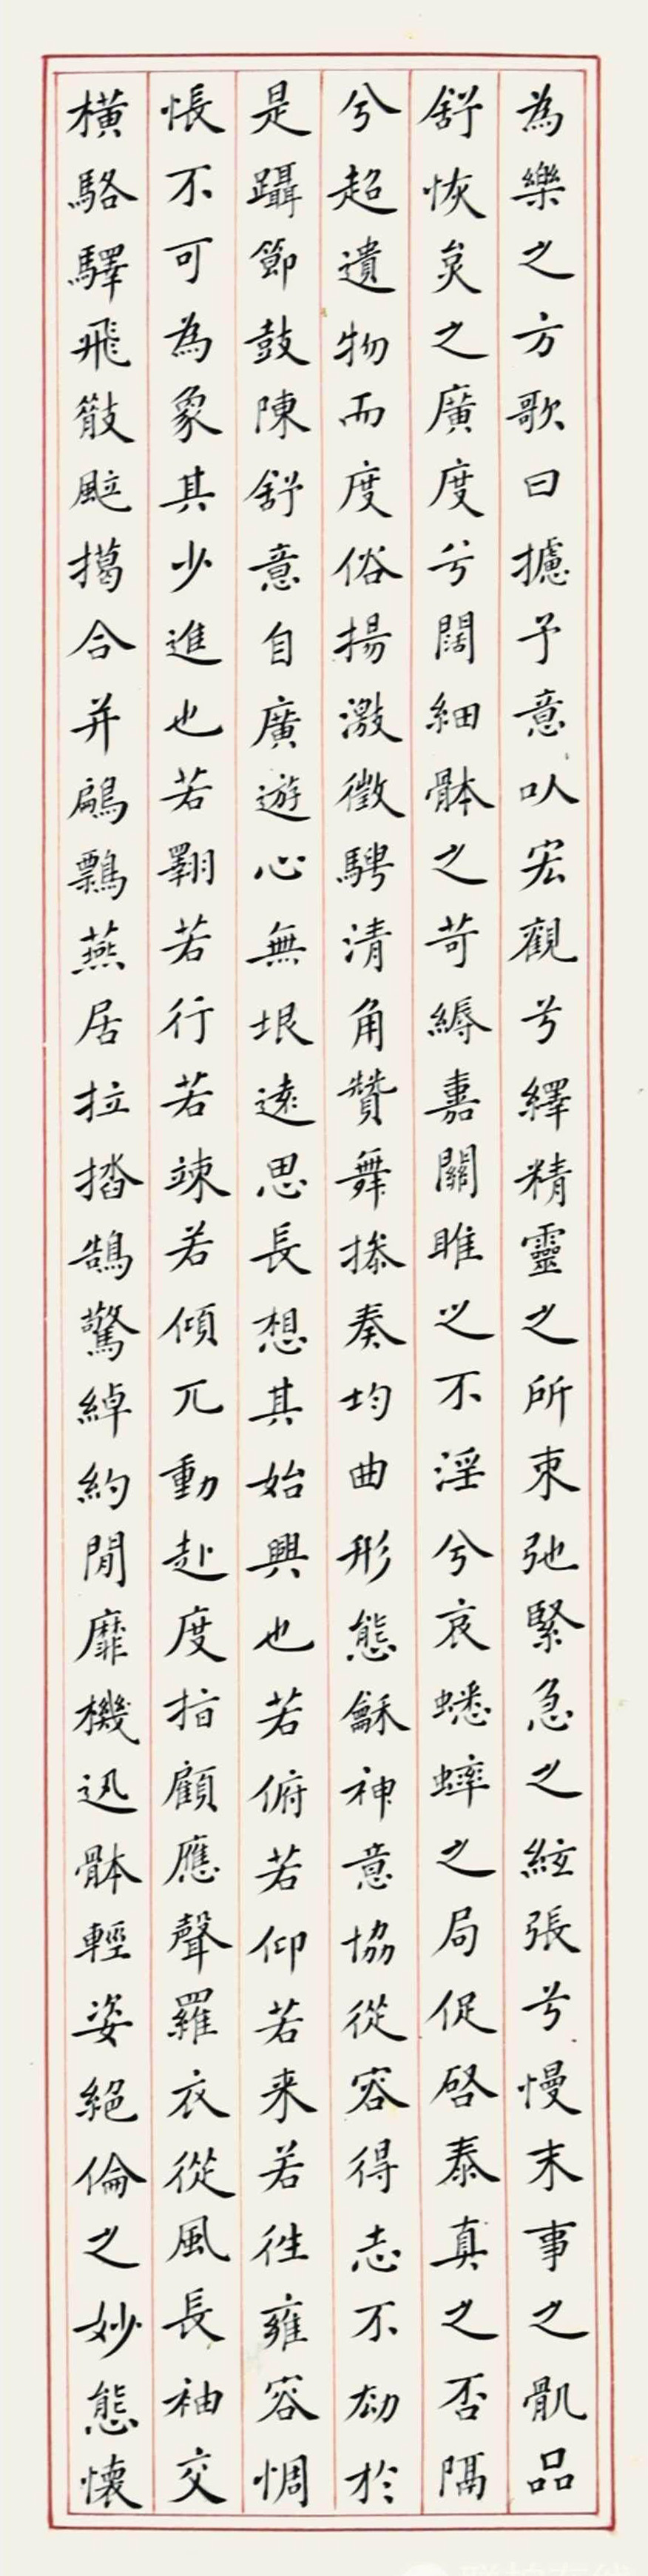 為樂之方歌曰攄予意㕥宏觀兮繹精靈之所束弛緊急之絃張兮慢末事之骫品
舒恢炱之廣度兮闊細骵之苛縟嘉關雎之不淫兮哀蟋蟀之局促啓泰真之否隔
兮超遺物而度俗揚激徵騁清角贊舞摻奏均曲形態龢神意協從容得志不劫於
是躡節鼓陳舒意自廣遊心無垠遠思長想其始興也若俯若仰若来若往雍容惆
悵不可為象其少進也若翾若行若竦若傾兀動赴度指顧應聲羅衣從風長袖交
橫駱驛飛散颯擖合并鶣䴩燕居拉㧺鵠驚綽約閒靡機迅骵輕姿絕倫之妙態懷